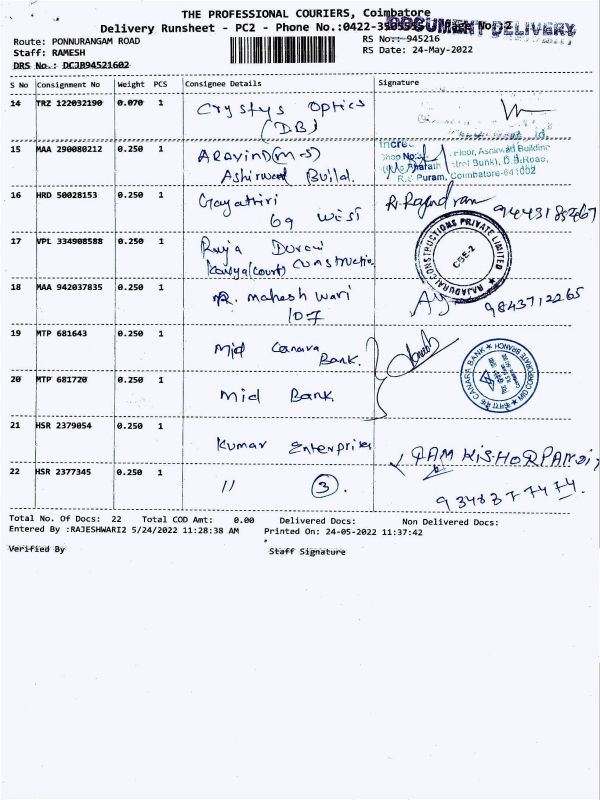 THE PROFESSIONAL COURIERS, Coimbatore
DOCUMENT DELIVERY
Delivery Runsheet - PC2 - Phone No.:0422- Page No.:2
Route: PONNURANGAM ROAD RS No.: 945216
Staff: RAMESH RS Date: 24-May-2022
DRS No.: DCJB94521602
S No Consignment No Weight PCS Consignee Details Signature
14 TRZ 122032190 0.070 1 Crystys Optics
(DB)
15 MAA 290080212 0.250 1 ARavind(M-S)
Ashirwad Build.
Shop No: Floor, Ashirwad Building
D.B.Road,
R.S. Puram, Coimbatore-641002
16 HRD 50028153 0.250 1 Gayathiri R. Rajendran
69 West
17 VPL 334908588 0.250 1 Raja Durai
Construction
RAJADURAI CONSTRUCTIONS PRIVATE LIMITED
CBE-2
18 MAA 942037835 0.250 1 R. maheshwari 9843712265
107
19 MTP 681643 0.250 1 Mid Canara
Bank.
20 MTP 681720 0.250 1 Mid Bank
CANARA BANK MID CORPORATE BRANCH
21 HSR 2379054 0.250 1 Kumar Enterprises
22 HSR 2377345 0.250 1 11 3.
Total No. Of Docs: 22 Total COD Amt: 0.00 Delivered Docs: Non Delivered Docs:
Entered By :RAJESHWARI2 5/24/2022 11:28:38 AM Printed On: 24-05-2022 11:37:42
Verified By Staff Signature